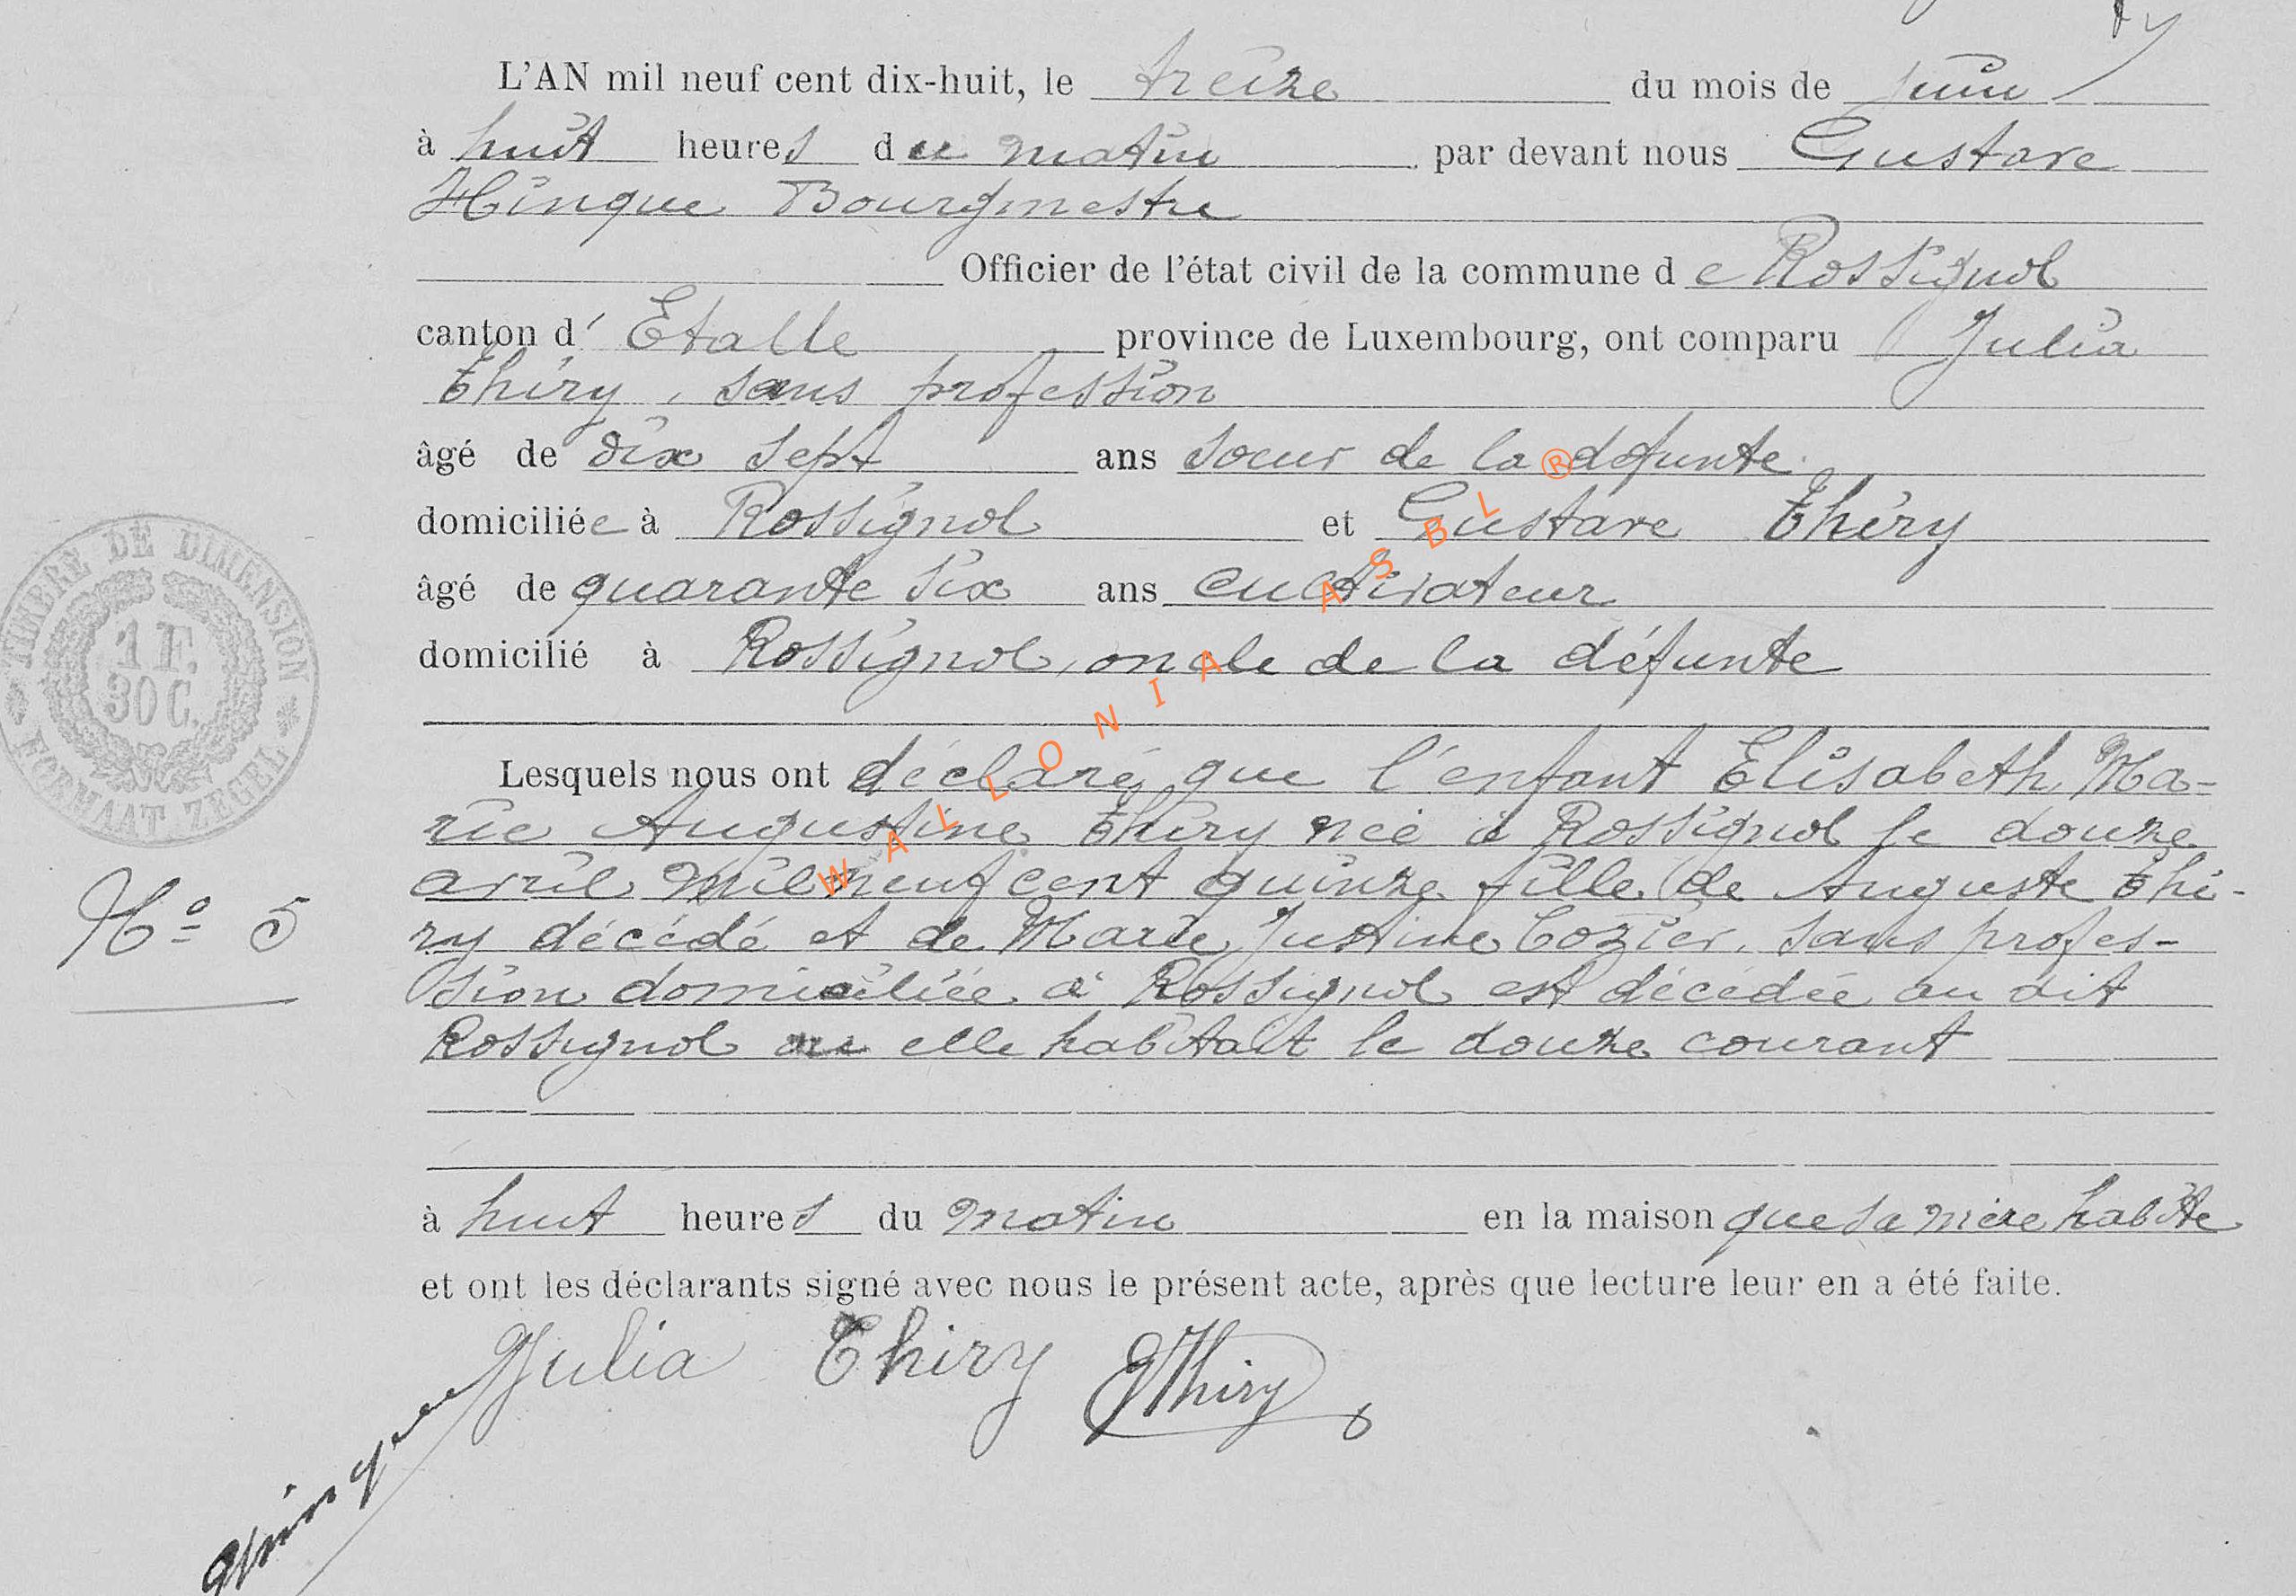 L'AN mil neuf cent dix-huit, le treize du mois de juin
à huit heures du matin par devant nous Gustave
Hinque Bourgmestre
Officier de l'état civil de la commune de Rossignol
canton d' Etalle province de Luxembourg, ont comparu Julia
Thiry, sans profession
âgé de dix sept ans soeur de la défunte
domiciliée à Rossignol et Gustave Thiry
âgé de quarante six ans cultivateur
domicilié à Rossignol, oncle de la défunte
Lesquels nous ont déclaré que l'enfant Elisabeth Ma=
rie Augustine Thiry née à Rossignol le douze
avril mil neuf cent quinze fille de Auguste Thi-
ry décédé et de Marie Justine Cozier, sans profes-
sion domiciliée à Rossignol est décédée au dit
Rossignol où elle habitait le douze courant
à huit heures du matin en la maison que sa mère habite
et ont les déclarants signé avec nous le présent acte, après que lecture leur en a été faite.
Julia Thiry GThiry
GHinque
No 5
TIMBRE DE DIMENSION
1 F.
30 C.
FORMAAT ZEGEL
WALLONIA ASBL ®